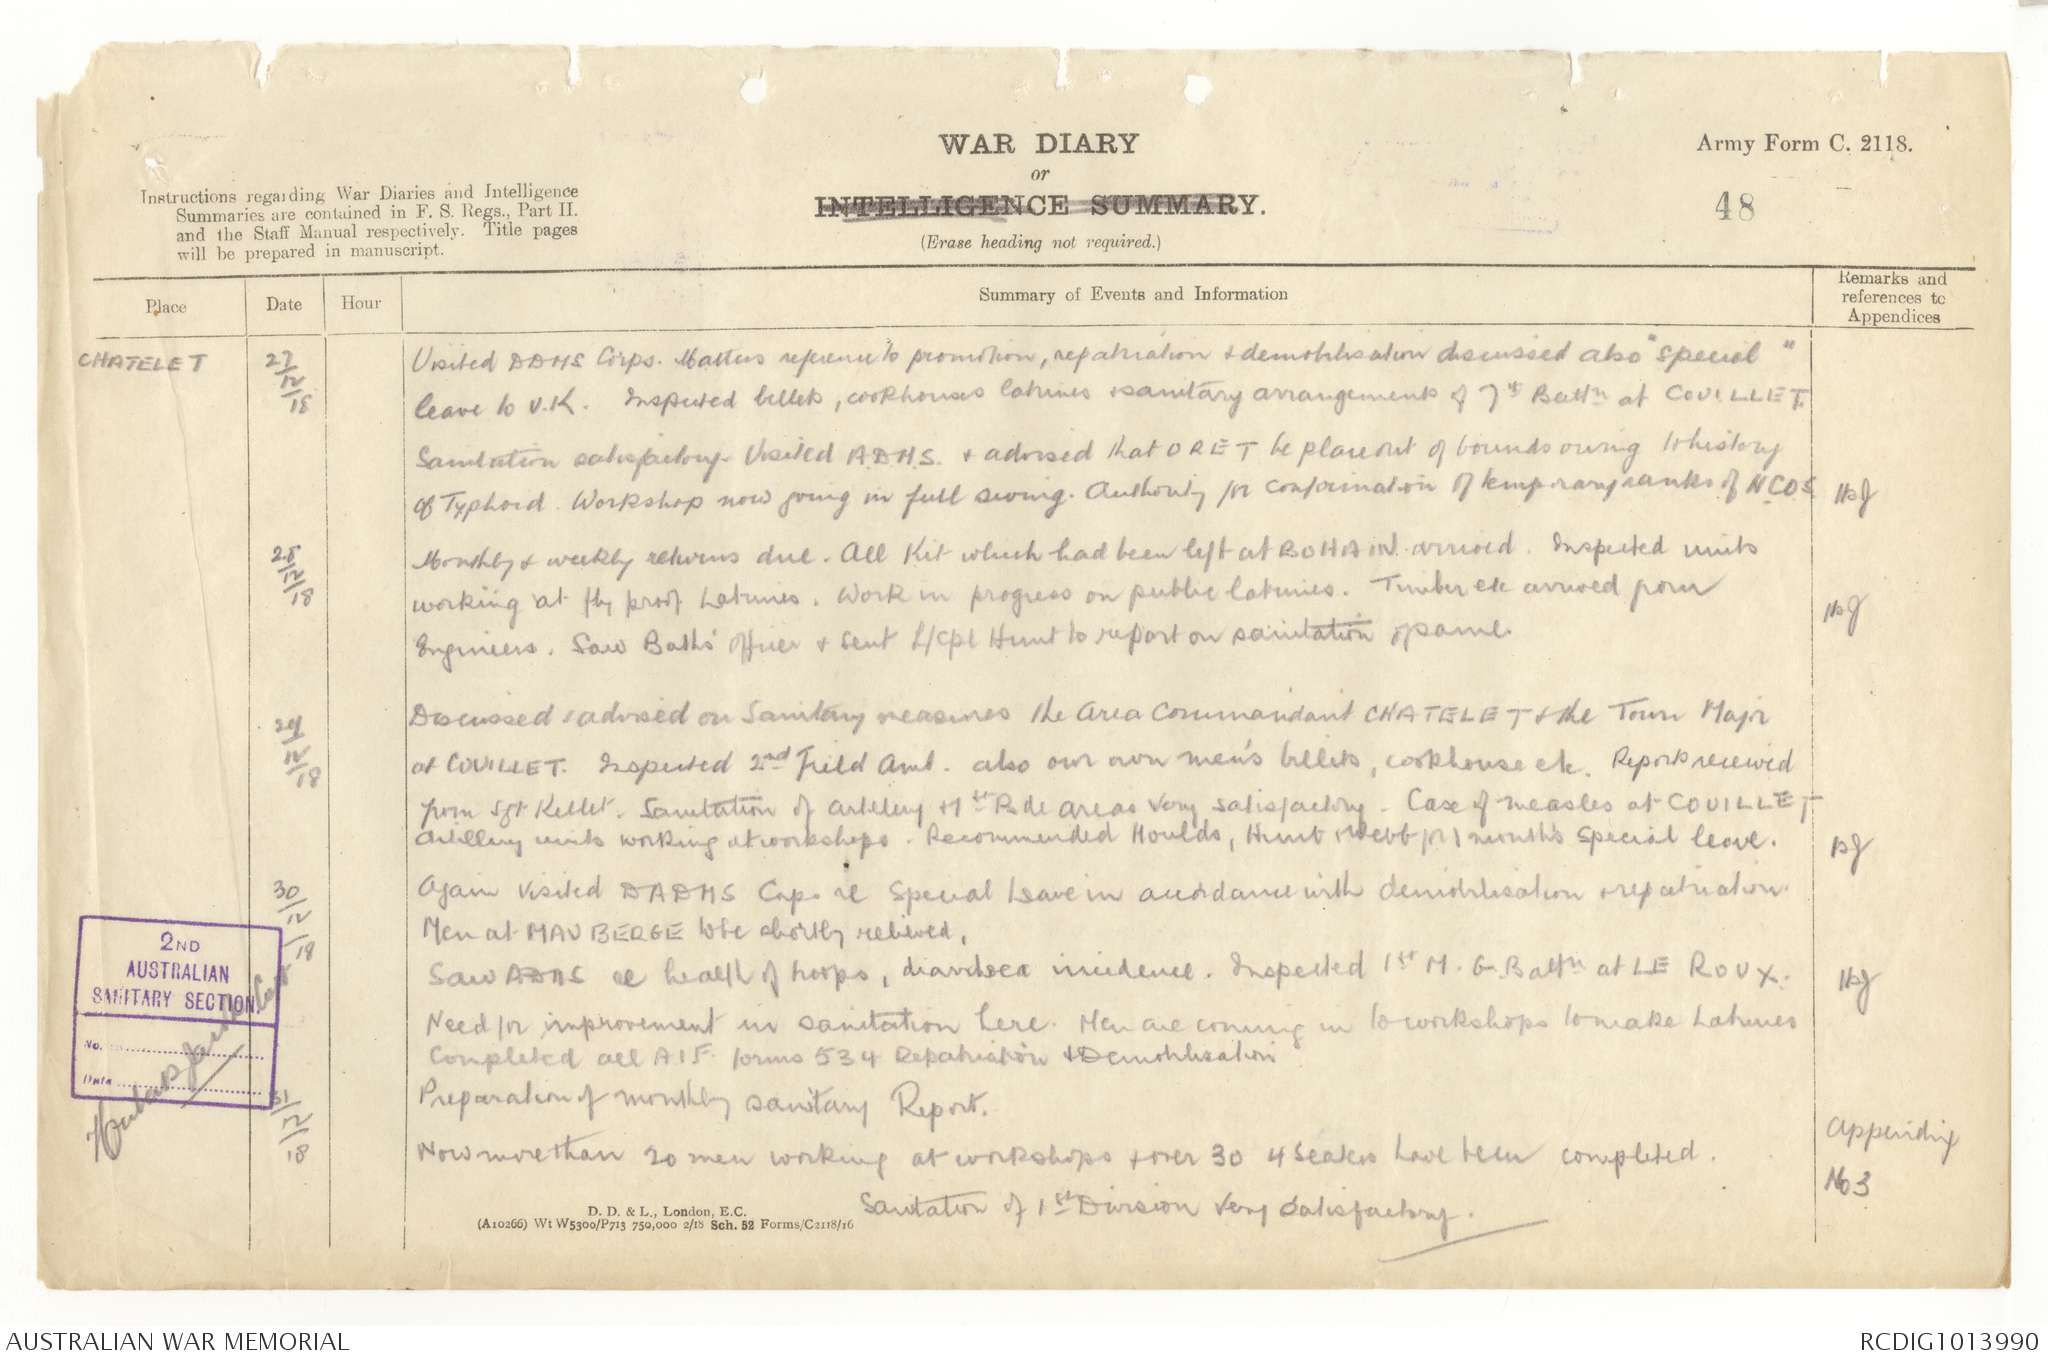 WAR DIARY
or
INTELLIGENCE SUMMARY.
(Erase heading not required.)
Army Form C. 2118.
48
Instructions regarding War Diaries and Intelligence
Summaries are contained in F. S. Regs., Part II.
and the Staff Manual respectively. Title pages
will be prepared in manuscript.
Place
Date
Hour
Summary of Events and Information
Remarks and
references to
Appendices
CHATELET
27/12/18
Visited DDMS Corps. Matters reference to promotion, repatriation & demobilisation discussed also "special"
leave to U.K. Inspected billets, cookhouses latrines & sanitary arrangements of 7th Battn at COUILLET.
Sanitation satisfactory. Visited A.D.M.S. & advised that ORET be place out of bounds owing to history
of Typhoid. Workshop now going in full swing. Authority for confirmation of temporary ranks of N.C.O.S
28/12/18
Monthly & weekly returns due. All Kit which had been left at BOHAIN arrived. Inspected units
working at fly proof Latrines. Work in progress on public latrines. Timber etc arrived from
Engineers. Saw Baths officer & sent L/Cpl Hunt to report on sanitation of same.
29/12/18
Discussed & advised on Sanitary measures the Area Commandant CHATELET & the Town Major
at COUILLET. Inspected 2nd Field Amb. also our own men's billets, cookhouse etc. Reports received
from Sgt Kellet. Sanitation of artillery & 1st Bde areas very satisfactory. Case of measles at COUILLET
Artillery units working at workshops. Recommended Moulds, Hunt & Webb for 1 months Special leave.
30/12/18
Again visited DADMS Corps re Special Leave in accordance with demobilisation & repatriation.
Men at MAUBERGE to be shortly relieved.
Saw ADMS re health of troops, diarrhoea incidence. Inspected 1st M. G. Battn at LE ROUX.
Need for improvement in sanitation here. Men are coming in to workshops to make Latrines
Completed all A.I.F. forms 534 Repatriation & Demobilisation
31/12/18
Preparation of monthly sanitary Report.
Now more than 20 men working at workshops & over 30 4 Seaters have been completed.
Sanitation of 1st Division very satisfactory.
Appendix
No 3
2ND
AUSTRALIAN
SANITARY SECTION
No.
Date
D. D. & L., London, E.C.
(A10266) Wt W5300/P713 750,000 2/18 Sch. 52 Forms/C2118/16
AUSTRALIAN WAR MEMORIAL
RCDIG1013990